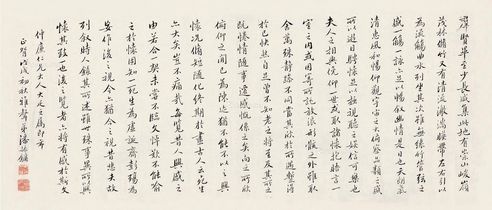 羣賢畢至少長咸集此地有崇山峻嶺
茂林脩竹又有清流激湍暎帶左右引以
為流觴曲水列坐其次雖無絲竹管弦之
盛一觴一詠亦足以暢敘幽情是日也天朗氣
清惠風和暢仰觀宇宙之大俯察品類之盛
所以遊目騁懷足以極視聽之娛信可樂也
夫人之相與俯仰一世或取諸懷抱晤言一
室之內或因寄所託放浪形骸之外雖取
舍萬殊靜躁不同當其欣於所遇暫得
於己快然自足曾不知老之將至及其所之
既惓情隨事遷感慨係之矣向之所欣
俯仰之間已為陳迹猶不能不以之興
懷況脩短隨化終期於盡古人云死生
亦大矣豈不痛哉每覽昔人興感之
由若合一契未嘗不臨文嗟歎不能喻
之於懷固知一死生為虛誕齊彭殤為
妄作後之視今亦猶今之視昔悲夫故
列敘時人錄其所述雖世殊事異所以興
懷其致一也後之覽者亦將有感於斯文
仁兄大人大疋之屬即希
正 戊戌初秋 弟潘